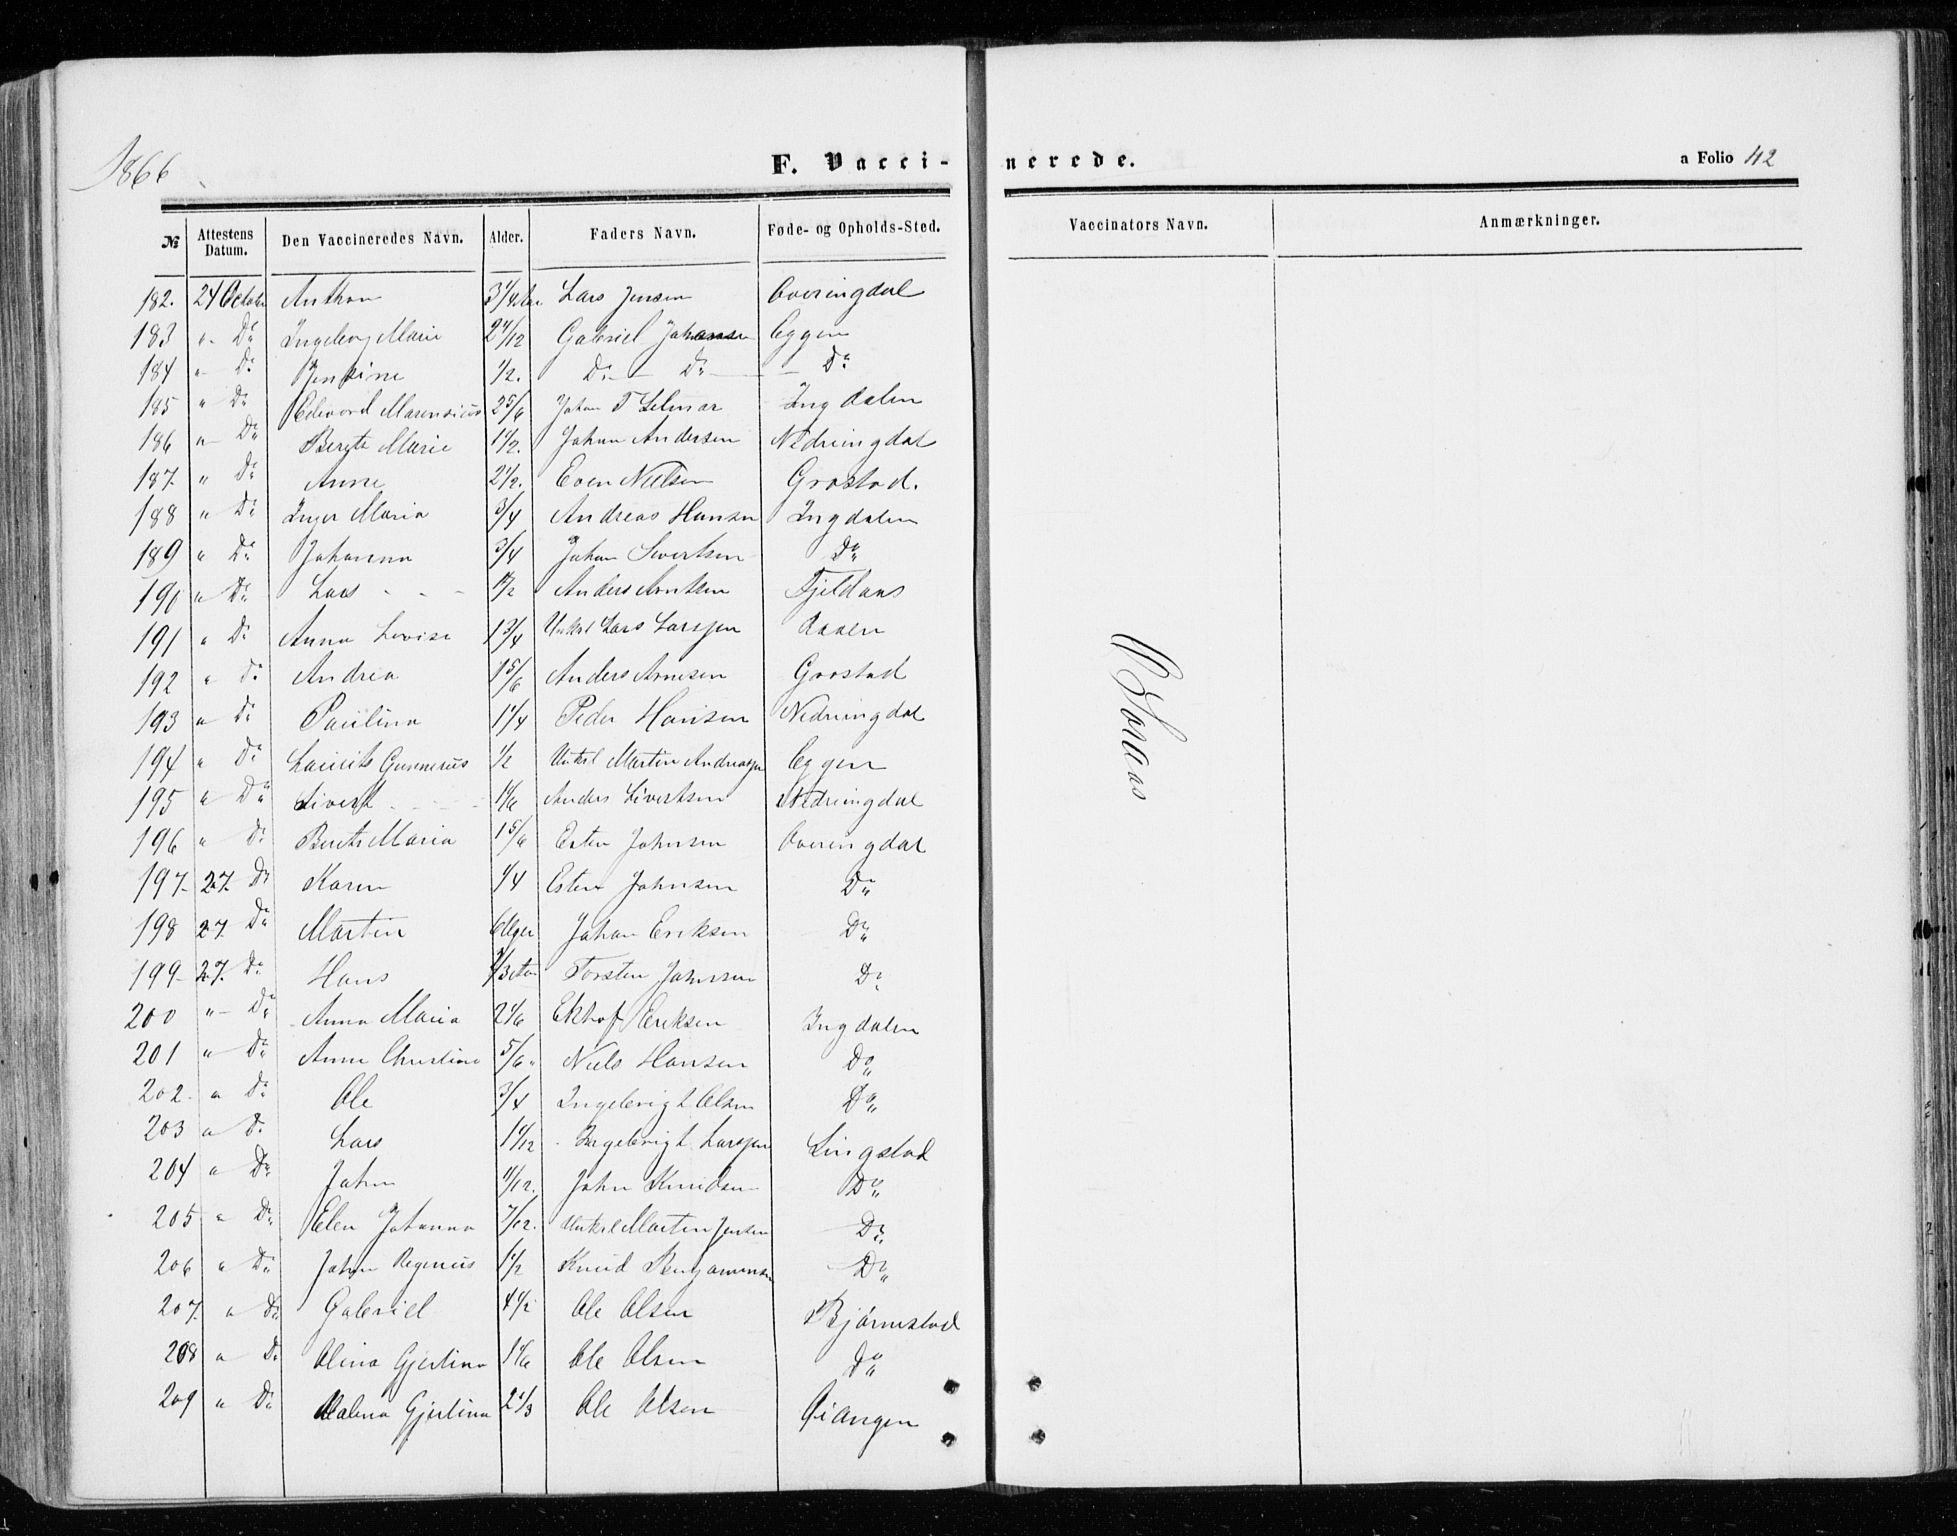 1866
F. Vaccinerede.
a Folio 42
№ Attestens Datum. Den Vaccineredes Navn. Alder. Faders Navn. Føde- og Opholds-Sted. Vaccinators Navn. Anmærkninger.
182. 24 October Anthon 3 1/4 Lars Jensen Overingdal
183 " Do Ingeborg Marie 2 1/12 Gabriel Johansen Eggen
184 " Do Jensine 1/2. Do — Do — Do
185 " Do Edevard Marensius 2 5/6 Johan T Selmar Ingdalen
186 " Do Beryte Marie 1 1/2. Johan Andersen Nedreingdal
187. " Do Anne 2 1/2. Even Nielsen Grostad.
188 " Do Inger Maria 3/4 Andreas Hansen Ingdalen
189 " Do Johanna 3/4 Johan Sivertsen Do
190 " Do Lars - - - 1/2 Anders Arntsen Fjeldaas
191 " Do Anna Lovise 1 3/4 Unkel Lars Larssen Aasen
192 " Do Andrea 1 5/6 Anders Arnesen Grostad
193 " Do Paulina 1 1/4 Peder Hansen Nedreingdal
194 " Do Laurits Gunnerus 1/2 Unkel Martin Andreassen Eggen
195 " Do Sivert - - - 1 1/6 Anders Sivertsen Nedreingdal
196 " Do Berit Maria 1 5/6 Esten Johnsen Overingdal
197. 27. Do Karen 1/4 Esten Johnsen Do
198 27. Do Martin 6 Uger Johan Eriksen Do
199 27. Do Hans 1/3 Aar Torsten Johnsen Do
200 " Do Anna Maria 2 1/6 Eriksen Ingdalen
201 " Do Anne Christina 5/6 Niels Hansen Do
202. " Do Ole 3/4 Ingebrigt Olsen Do
203 " Do Lars 1 1/12 Ingebrigt Larssen Lingstad
204 " Do John 11/12. John Knudsen Do
205 " Do Elen Johanna 7/12. Unkel Martin Jensen Do
206 " Do Johan Regenius 1 1/2 Knud Benjaminsen Do
207. " Do Gabriel 4 1/2 Ole Olsen Bjørnstad
208 " Do Olina Gjertina 1 1/6 Ole Olsen Do
209 " Do Malena Gjertina 2 1/3 Ole Olsen Øiangen